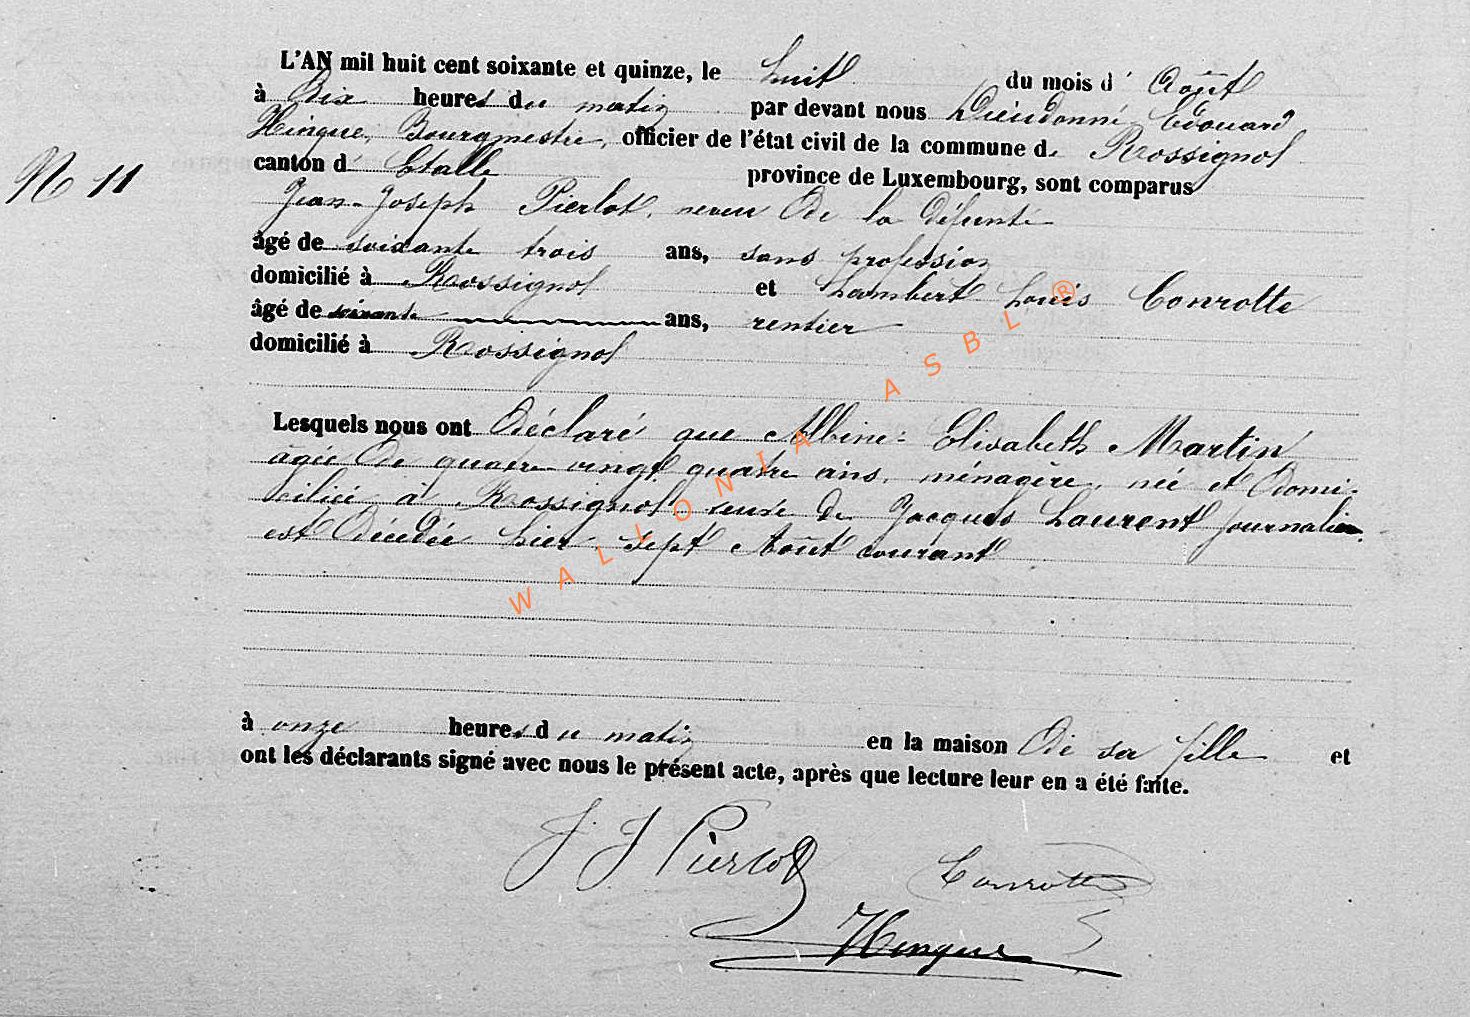 L'AN mil huit cent soixante et quinze, le huit du mois d' Août
à Dix heures du matin par devant nous Dieudonné Edouard
Hinque, Bourgmestre, officier de l'état civil de la commune de Rossignol
N 11
canton d' Etalle province de Luxembourg, sont comparus
Jean-Joseph Pierlot, neveu De la défunte
âgé de soixante trois ans, sans profession
domicilié à Rossignol et Lambert Louis Conrotte
âgé de soixante ans, rentier
domicilié à Rossignol
Lesquels nous ont Déclaré que Albine-Elisabeth Martin
âgée De quatre vingt quatre ans, ménagère, née et Domi-
ciliée à Rossignol veuve de Jacques Laurent journalier
est Décédée hier sept Août courant
à onze heures du matin en la maison De sa fille et
ont les déclarants signé avec nous le présent acte, après que lecture leur en a été faite.
J J Pierlot Conrotte
Hinque
WALLONIA ASBL ®